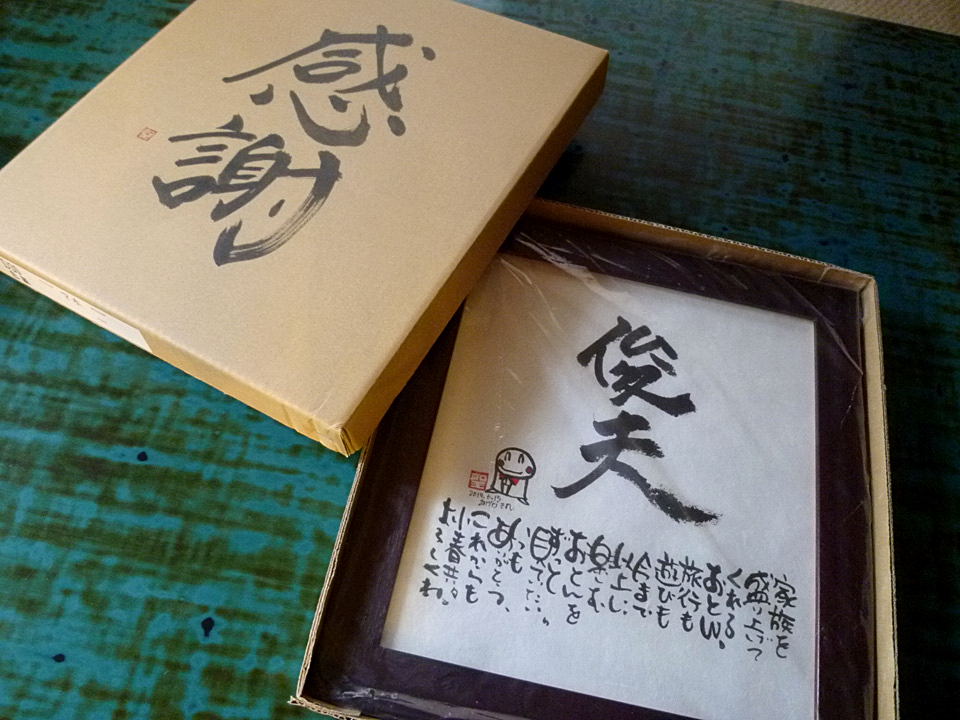 感
謝
俊
夫
家族を
盛り上げて
くれる
おとん。
旅行も
遊びも
今まで
以上に
楽しむ
おとんを
ずっと
見ていたい。
いつも
ありがとう、
これからも
小春共々
よろしくね。